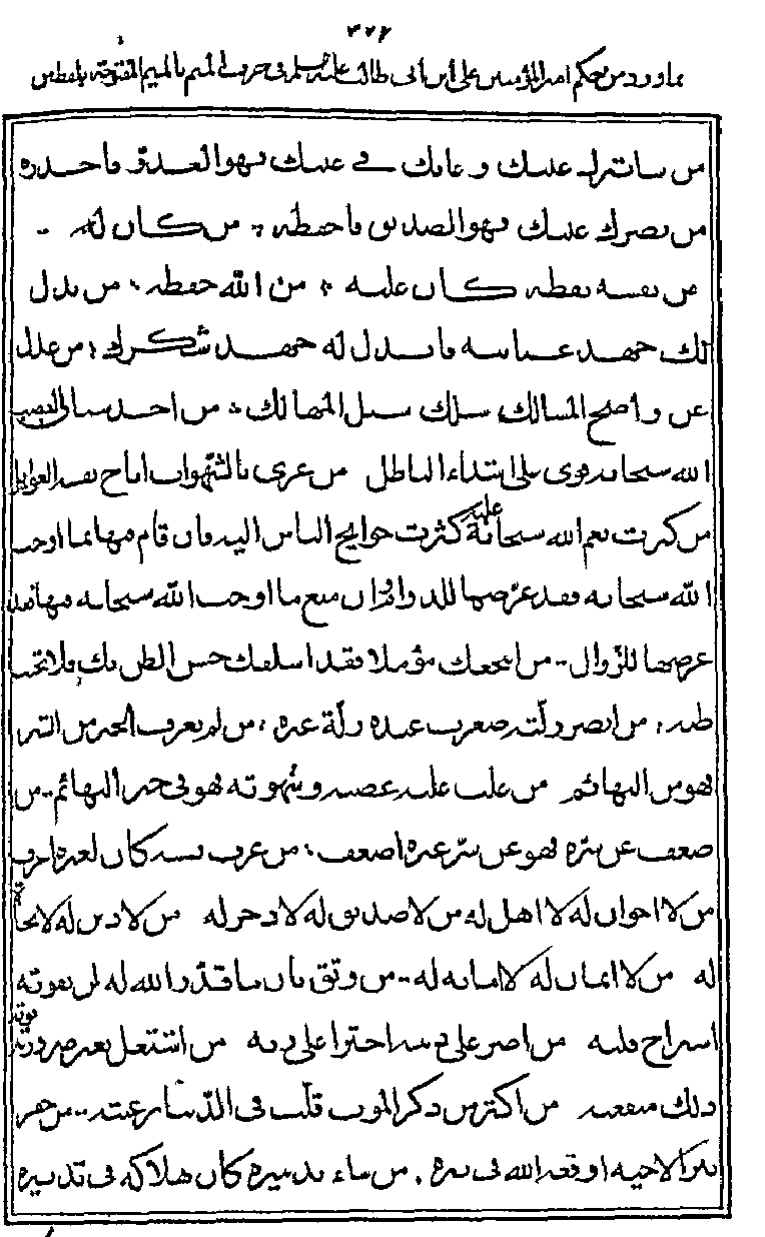 مما ورد من حكم امير المؤمنين على ابن ابى طالب عليه فى حرف الميم بالميم المفتوحة بلفظ من
من ساتر عليك وعابك فى غيبك فهو العدو فاحذره
من بصرك عيبك فهو الصديق فاحفظه من كان له
من نفسه يقظه كان عليه من الله حفظه من بذل
لك جهد عنايته فابذل له جهد شكرك من عدل
عن واضح المسالك سلك سبل المهالك من احد سنان الغضب
لله سبحانه قوى على اشداء الباطل من غرى بالشهوات اباح نفسه الغوايل
من كثرت نعم الله سبحانه عليه كثرت حوايج الناس اليه فان قام فيها بما اوجب
الله سبحانه فقد عرضها للدوام وان منع ما اوجب الله سبحانه فيها فقد
عرضها للزوال من انتجعك مؤملا فقد اسلفك حسن الظن بك فلا تخيب
ظنه من ابصر زلته صغرت عنده زلة غيره من لم يعرف الخير من الشر
فهو من البهائم من غلب عليه غضبه وشهوته فهو فى حيز البهائم من
ضعف عن سره فهو عن سر غيره اضعف من عرف نفسه كان لغيره اعرف
من لا اخوان له لا اهل له من لا صديق له لا ذخر له من لا دين له لا نجاة
له من لا ايمان له لا امانة له من وثق بان ما قدر الله له لن يفوته
استراح قلبه من اصر على ذنبه اجترا على ربه من اشتغل بغير ضرورته فوته
ذلك منفعته من اكثر من ذكر الموت قلت فى الدنيا رغبته من حفر
بئرا لاخيه اوقعه الله فى بئره من ساء تدبيره كان هلاكه فى تدبيره